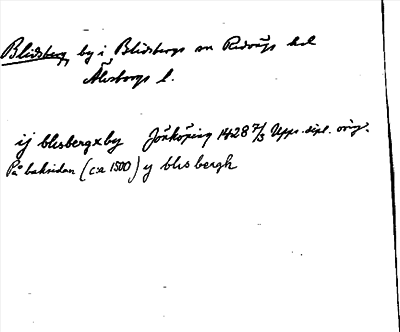 Blidsberg, by i Blidsbergs sn Redvägs hd
Älvsborgs l.
ij blesbergxby Jönköping 1428 7/5 Upps. dipl. orig.
På baksidan (ca 1500) y blis bergh